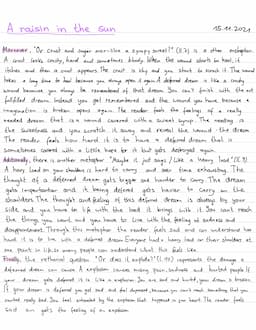 A raisin in the sun 15.11.2021
Moreover, "Or crust and sugar over-like a syrupy sweet?" (l.7) is a other metaphor.
A crust looks crusty, hard and sometimes bloody. When the wound starts to heal, it
itches and then a crust appears. The crust is itchy and you start to scratch it. The wound
takes a long time to heal because you always open it again. A deferred dream is like a candy
wound because you always be remembered of that dream. You can't finish with the not
fulfilled dream. Instead you get remembered and the wound you have, because
imagination is broken opens again. The reader feels the feelings of a really
needed dream that is a wound covered with a sweet syrup. The is
the sweetness and you scratch it away and reveal the wound - the dream.
The reader feels how hard it is to have a deferred dream that is
sometimes covered with a little hope for it but gets destroyed again.
Additionally, there is another metaphor "Maybe it just sags / like a heavy load" (l.9)
A heavy load on your shoulders is hard to carry and can be exhausting. The
thought of a deferred dream gets bigger and harder to carry. The dream
gets important and it being deferred gets heavier to carry on the
shoulders. The thought and feeling of this deferred dream is always by your
side, and you have to live with the load it brings with it. You can't reach
the things you want and you have to live with the feeling of sadness and
disappointment. Through this metaphor the reader feels sad and can understand how
hard it is to live with a deferred dream. Everyone had a heavy load on their shoulder at
one point in life so many people can understand what this feels like.
Finally, the rethorical question "Or does it explode?" (l.11) represents the damage a
deferred dream can cause. A explosion causes many pain, sadness and hurted people. If
your dream gets deferred it is like a explosion. You are sad and hurt, your dream is broken.
If your dream is deferred you get sad and feel depressed, because you can't reach something that you
wanted really bad. You feel exhausted by the explosion that happened in your heart. The reader feels
sad and gets the feeling of an explosion